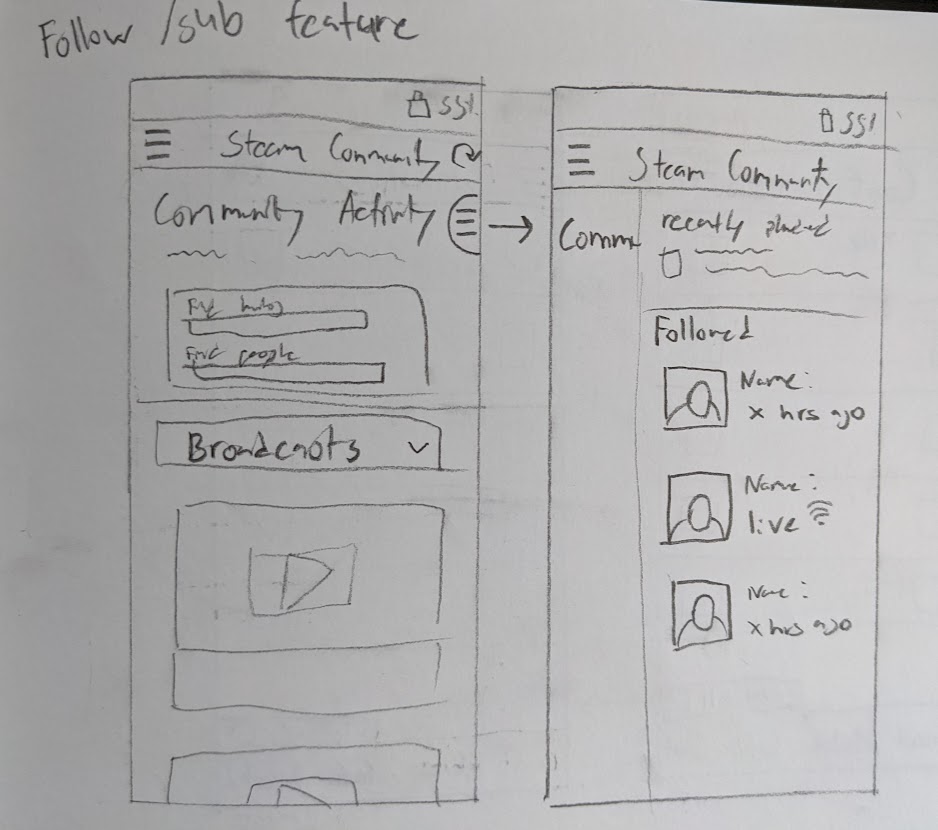 Follow /sub feature
SSL
Steam Community
Community Activity
Find hubs
Find people
Broadcasts
SSL
Steam Community
Commu
recently played
Followed
Name:
x hrs ago
Name:
live
Name:
x hrs ago